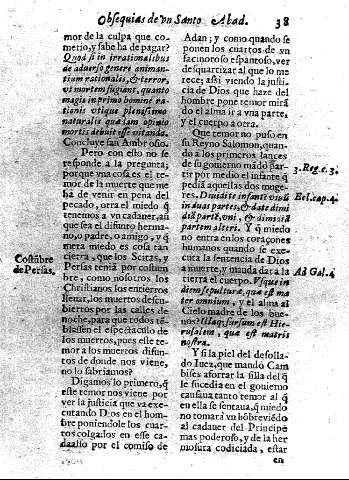 Obsequias de vn Santo Abad. 38
mor de la culpa que co-
metio, y sabe ha de pagar?
Quod si in irrationalibus
de aduerso genere animan-
tium rationalis, & terror,
vt mortem fugiant, quanto
magis in primo homine ra-
tionis vtique plenissimo
naturalis quædam opinio
mortis debuit esse vitanda.
Concluye san Ambrosio.
Pero con esto no se
responde a la pregunta;
porque vna cosa es el te-
mor de la muerte que me
ha de venir en pena del
pecado, otra el miedo q̃
tenemos a vn cadauer, aũ
que sea del difunto herma-
no, o padre, o amigo, y q̃
mera miedo es cosa tan
cierta, que los Scitas, y
Persas tenia por costum
bre, como nosotros los
Christianos los entierros
lleuar, los muertos descu-
biertos por las calles de
noche, para que todos tẽ-
blassen el espectaculo de
los muertos, pues este te-
mor a los muertos difun-
tos de donde nos viene,
no lo sabriamos?
Digamos lo primero, q̃
este temor nos viene por
ver la justicia que va exe-
cutando Dios en el hom-
bre poniendole los cuar-
tos colgados en esse ca-
daalso por el comiso de
Costũbre
de Persas.
Adan; y como quando se
ponen los cuartos de vn
facinoroso espantoso, ver
desquartizar al que lo me
rece; assi viendo la justi-
cia de Dios que haze del
hombre pone temor mirã
do el alma ir a vna parte,
y el cuerpo a otra.
Que temor no puso en
su Reyno Salomon, quan-
do a los primeros lances
de su gouierno mãdò par-
tir por medio el infante q̃
pediã aquellas dos muge-
res. Diuidite infantẽ viuũ
in duas partes, & date dimi
diã partẽ, vni, & dimidiã
partem alteri. Y q̃ miedo
no entra en los coraçones
humanos quando se exe-
cuta la sentencia de Dios
a muerte, y manda dar a la
tierra el cuerpo. Vsque in
diem sepulturæ, quæ est ma
ter omnium, y el alma al
Cielo madre de los bue-
nos? Illaq; sursum est Hie-
rusalem, quæ est matris
nostra.
Y si la piel del desolla-
do Iuez, que mandò Cam
bises aforrar la silla del q̃
le sucedia en el gouierno
causaua tanto temor al q̃
en ella se sentaua, q̃ miedo
no tomarà vn hõbre viẽdo
al cadauer del Principe
mas poderoso, y de la her
mosura codiciada, estar
en
3. Reg. c. 3.
Ecl. cap. 4.
Ad Gal. 4.